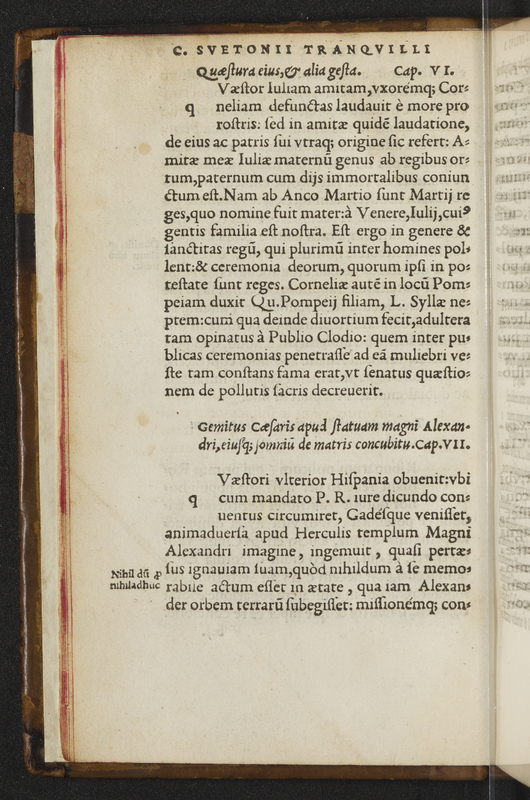 C. SVETONII TRANQVILLI
Quæstura eius,& alia gesta. Cap. VI.
Væstor Iuliam amitam,vxorémq; Cor-
q neliam defunctas laudauit è more pro
rostris: sed in amitæ quidē laudatione,
de eius ac patris sui vtraq; origine sic refert: A-
mitæ meæ Iuliæ maternū genus ab regibus or-
tum,paternum cum dijs immortalibus coniun
ctum est.Nam ab Anco Martio sunt Martij re
ges,quo nomine fuit mater:à Venere,Iulij,cuiꝰ
gentis familia est nostra. Est ergo in genere &
sanctitas regū, qui plurimū inter homines pol-
lent:& ceremonia deorum, quorum ipsi in po-
testate sunt reges. Corneliæ autē in locū Pom-
peiam duxit Qu.Pompeij filiam, L. Syllæ ne-
ptem:cum qua deinde diuortium fecit,adultera
tam opinatus à Publio Clodio: quem inter pu-
blicas ceremonias penetrasse ad eā muliebri ve-
ste tam constans fama erat,vt senatus quæstio-
nem de pollutis sacris decreuerit.
Gemitus Cæsaris apud statuam magni Alexan-
dri,eiusq; somniū de matris concubitu.Cap.VII.
Væstori vlterior Hispania obuenit:vbi
q cum mandato P. R. iure dicundo con-
uentus circumiret, Gadésque venisset,
animaduersa apud Herculis templum Magni
Alexandri imagine, ingemuit, quasi pertæ-
sus ignauiam suam,quòd nihildum à se memo-
rabile actum esset in ætate, qua iam Alexan-
der orbem terrarū subegisset: missionémq; con-
Nihil dū ꝓ
nihil adhuc